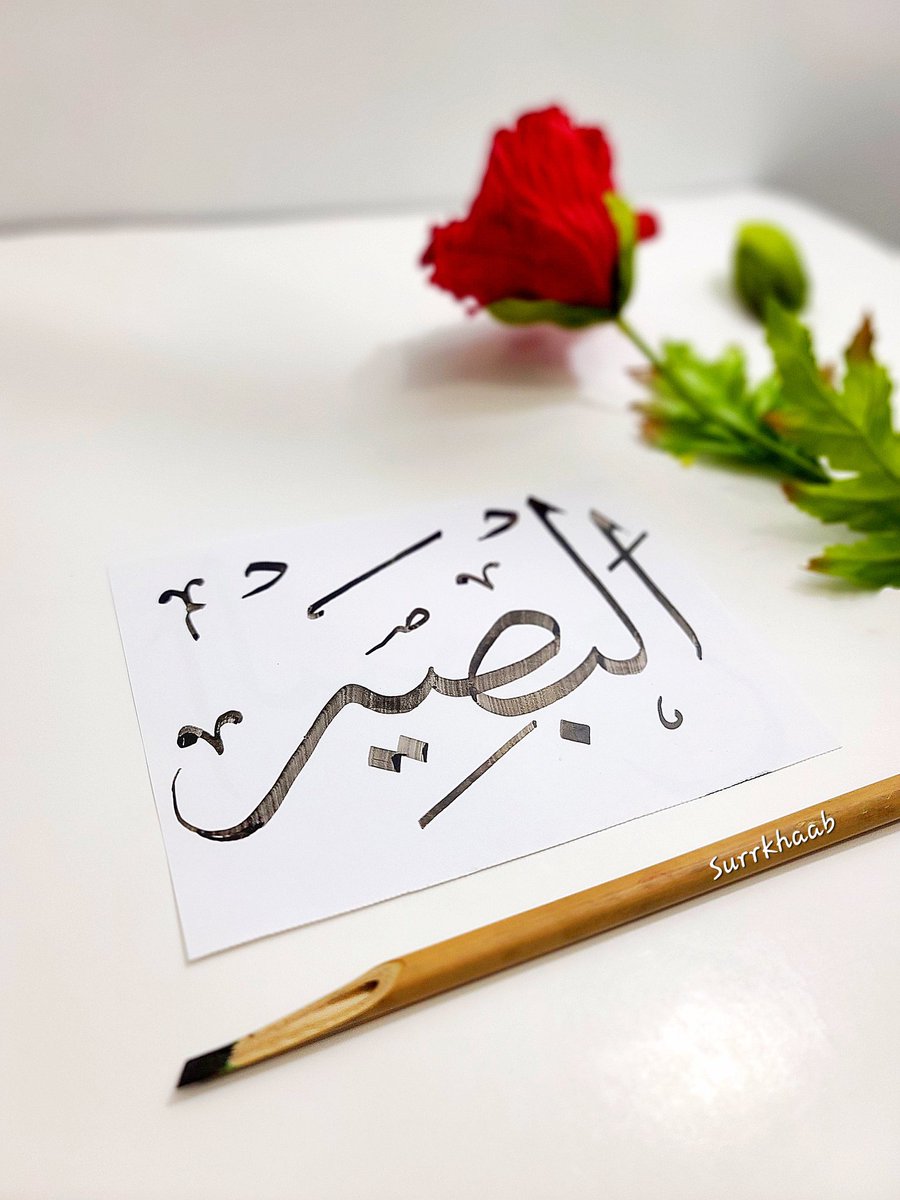 البصير
Surrkhaab